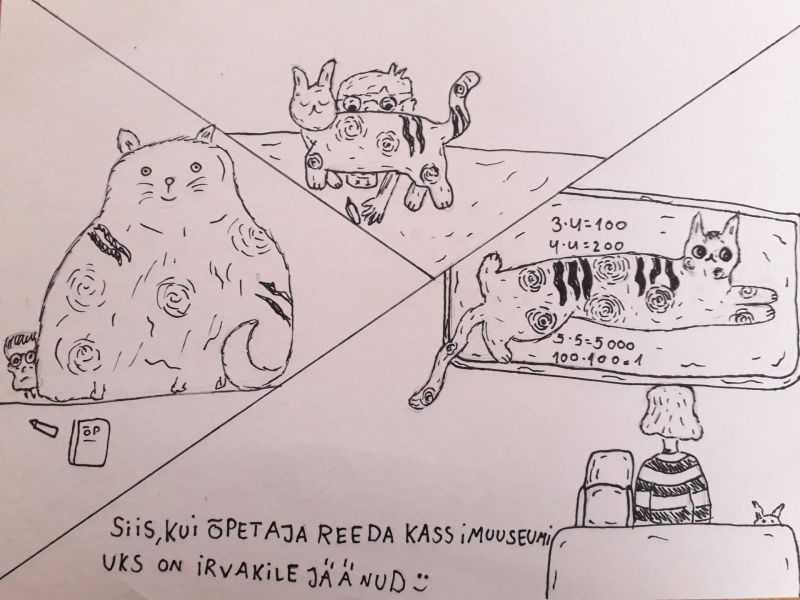 3·4=100
4·4=200
5·5=5000
100·100=1
ÕP
SiiS, KUI ÕPETAJA REEDA KASSiMUUSEUMi
UKS ON iRVAKiLE JÄÄNUD :)